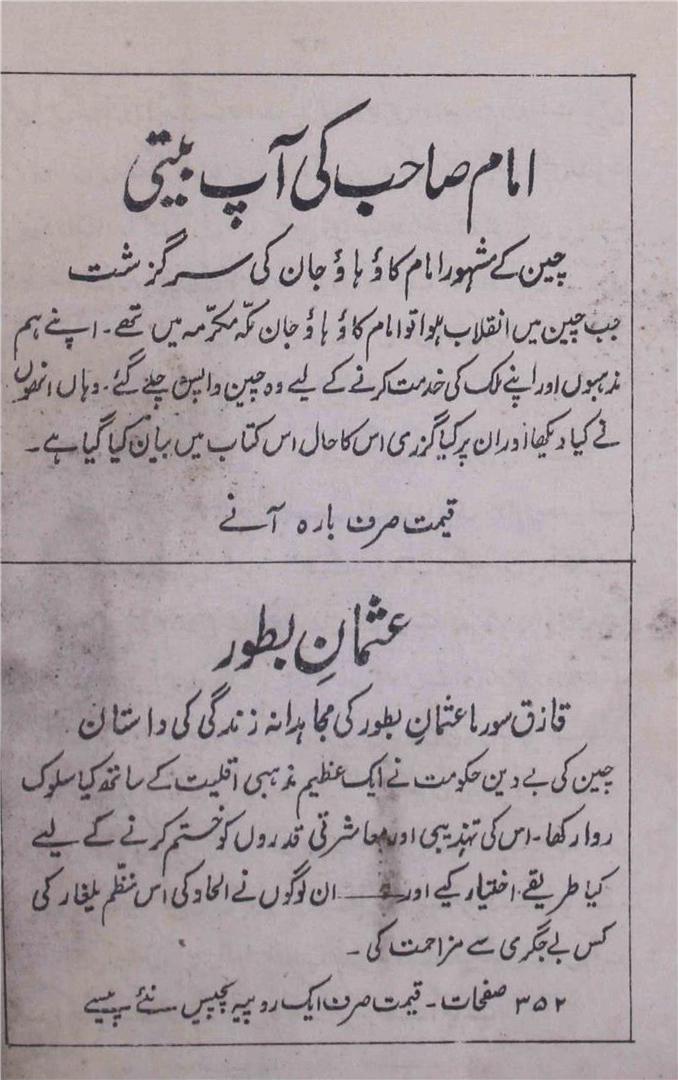 امام صاحب کی آپ بیتی
چین کے مشہور امام کاؤ ہاؤ جان کی سرگزشت
جب چین میں انقلاب ہوا تو امام کاؤ ہاؤ جان مکّہ مکرّمہ میں تھے۔ اپنے ہم
مذہبوں اور اپنے ملک کی خدمت کرنے کے لیے وہ چین واپس چلے گئے۔ وہاں انھوں
نے کیا دیکھا اور ان پر کیا گزری اس کا حال اس کتاب میں بیان کیا گیا ہے۔
قیمت صرف بارہ آنے
عثمانِ بطور
قازق سورما عثمانِ بطور کی مجاہدانہ زندگی کی داستان
چین کی بے دین حکومت نے ایک عظیم مذہبی اقلیت کے ساتھ کیا سلوک
روا رکھا۔ اس کی تہذیبی اور معاشرتی قدروں کو ختم کرنے کے لیے
کیا طریقے اختیار کیے اور ـــــ ان لوگوں نے الحاد کی اس منظّم یلغار کی
کس بے جگری سے مزاحمت کی۔
۳۵۲ صفحات۔ قیمت صرف ایک روپیہ پچیس نئے پیسے